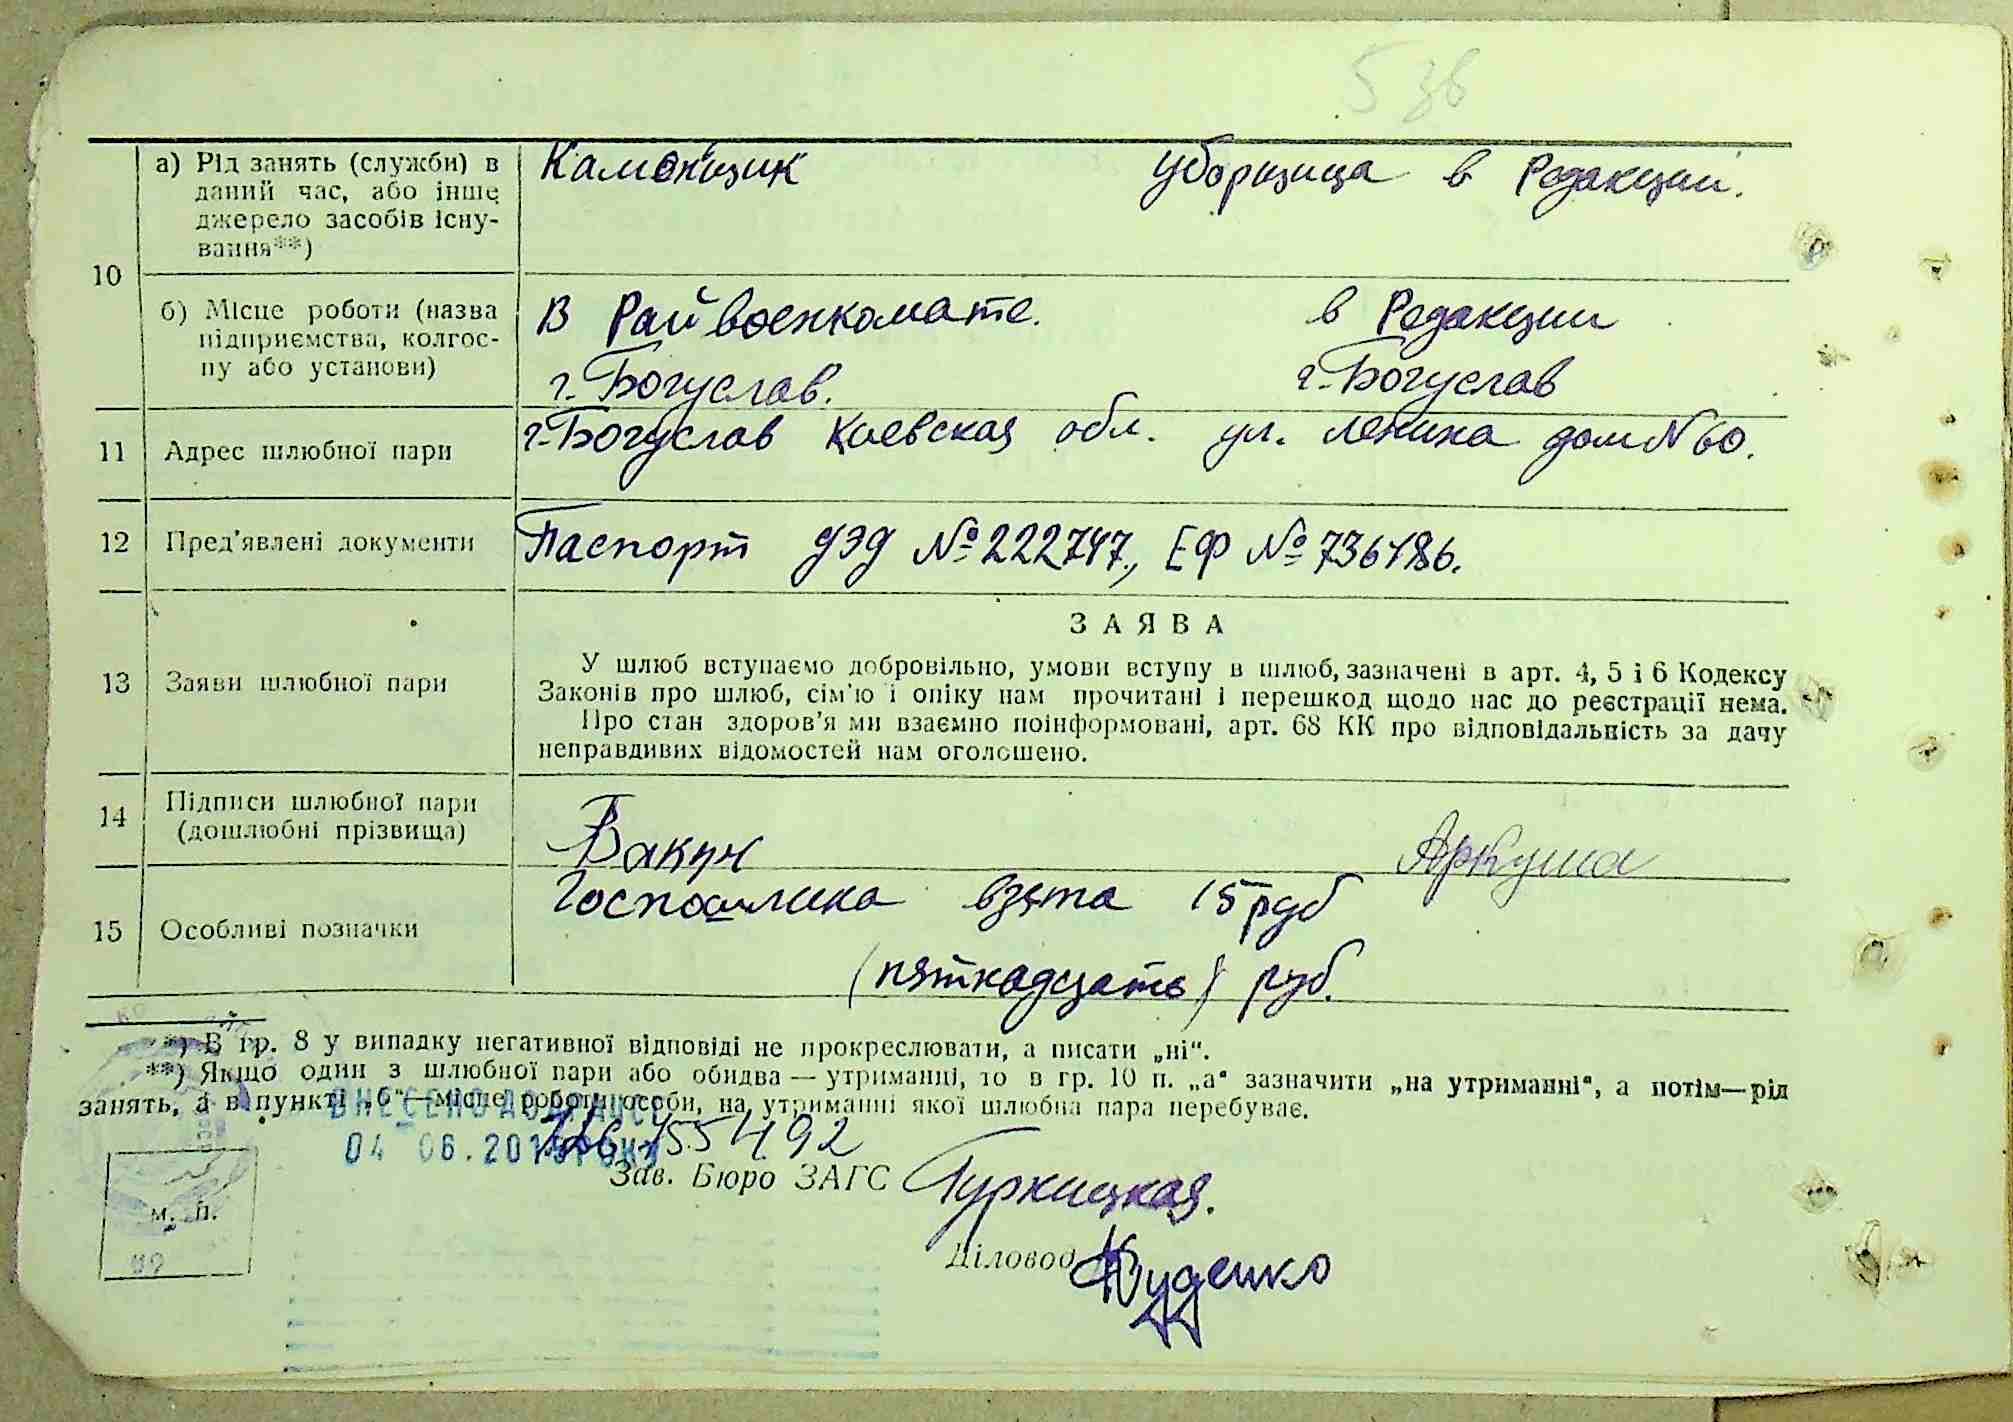 5 зв
10
а) Рід занять (служби) в
даний час, або інше
джерело засобів існу-
вання**)
Каменщик
уборщица в Редакции.
б) Місце роботи (назва
підприємства, колгос-
пу або установи)
В Райвоенкомате.
г. Богуслав.
в Редакции
г. Богуслав
11 Адрес шлюбної пари
г. Богуслав Киевская обл. ул. Ленина дом №60.
12 Пред'явлені документи
Паспорт № 222747., ЕФ № 736486.
13 Заяви шлюбної пари
ЗАЯВА
У шлюб вступаємо добровільно, умови вступу в шлюб, зазначені в арт. 4, 5 і 6 Кодексу
Законів про шлюб, сім'ю і опіку нам прочитані і перешкод щодо нас до реєстрації нема.
Про стан здоров'я ми взаємно поінформовані, арт. 68 КК про відповідальність за дачу
неправдивих відомостей нам оголошено.
14 Підписи шлюбної пари
(дошлюбні прізвища)
Бакун
Аркуша
15 Особливі позначки
Госпошлина взята 15 руб
(пятнадцать) руб.
*) В гр. 8 у випадку негативної відповіді не прокреслювати, а писати „ні“.
**) Якщо один з шлюбної пари або обидва — утриманці, то в гр. 10 п. „а“ зазначити „на утриманні“, а потім—рід
занять, а в пункті „б“—місце роботи особи, на утриманні якої шлюбна пара перебуває.
ВНЕСЕНО ДО
04 06.201
Зав. Бюро ЗАГС
Діловод
м. п.